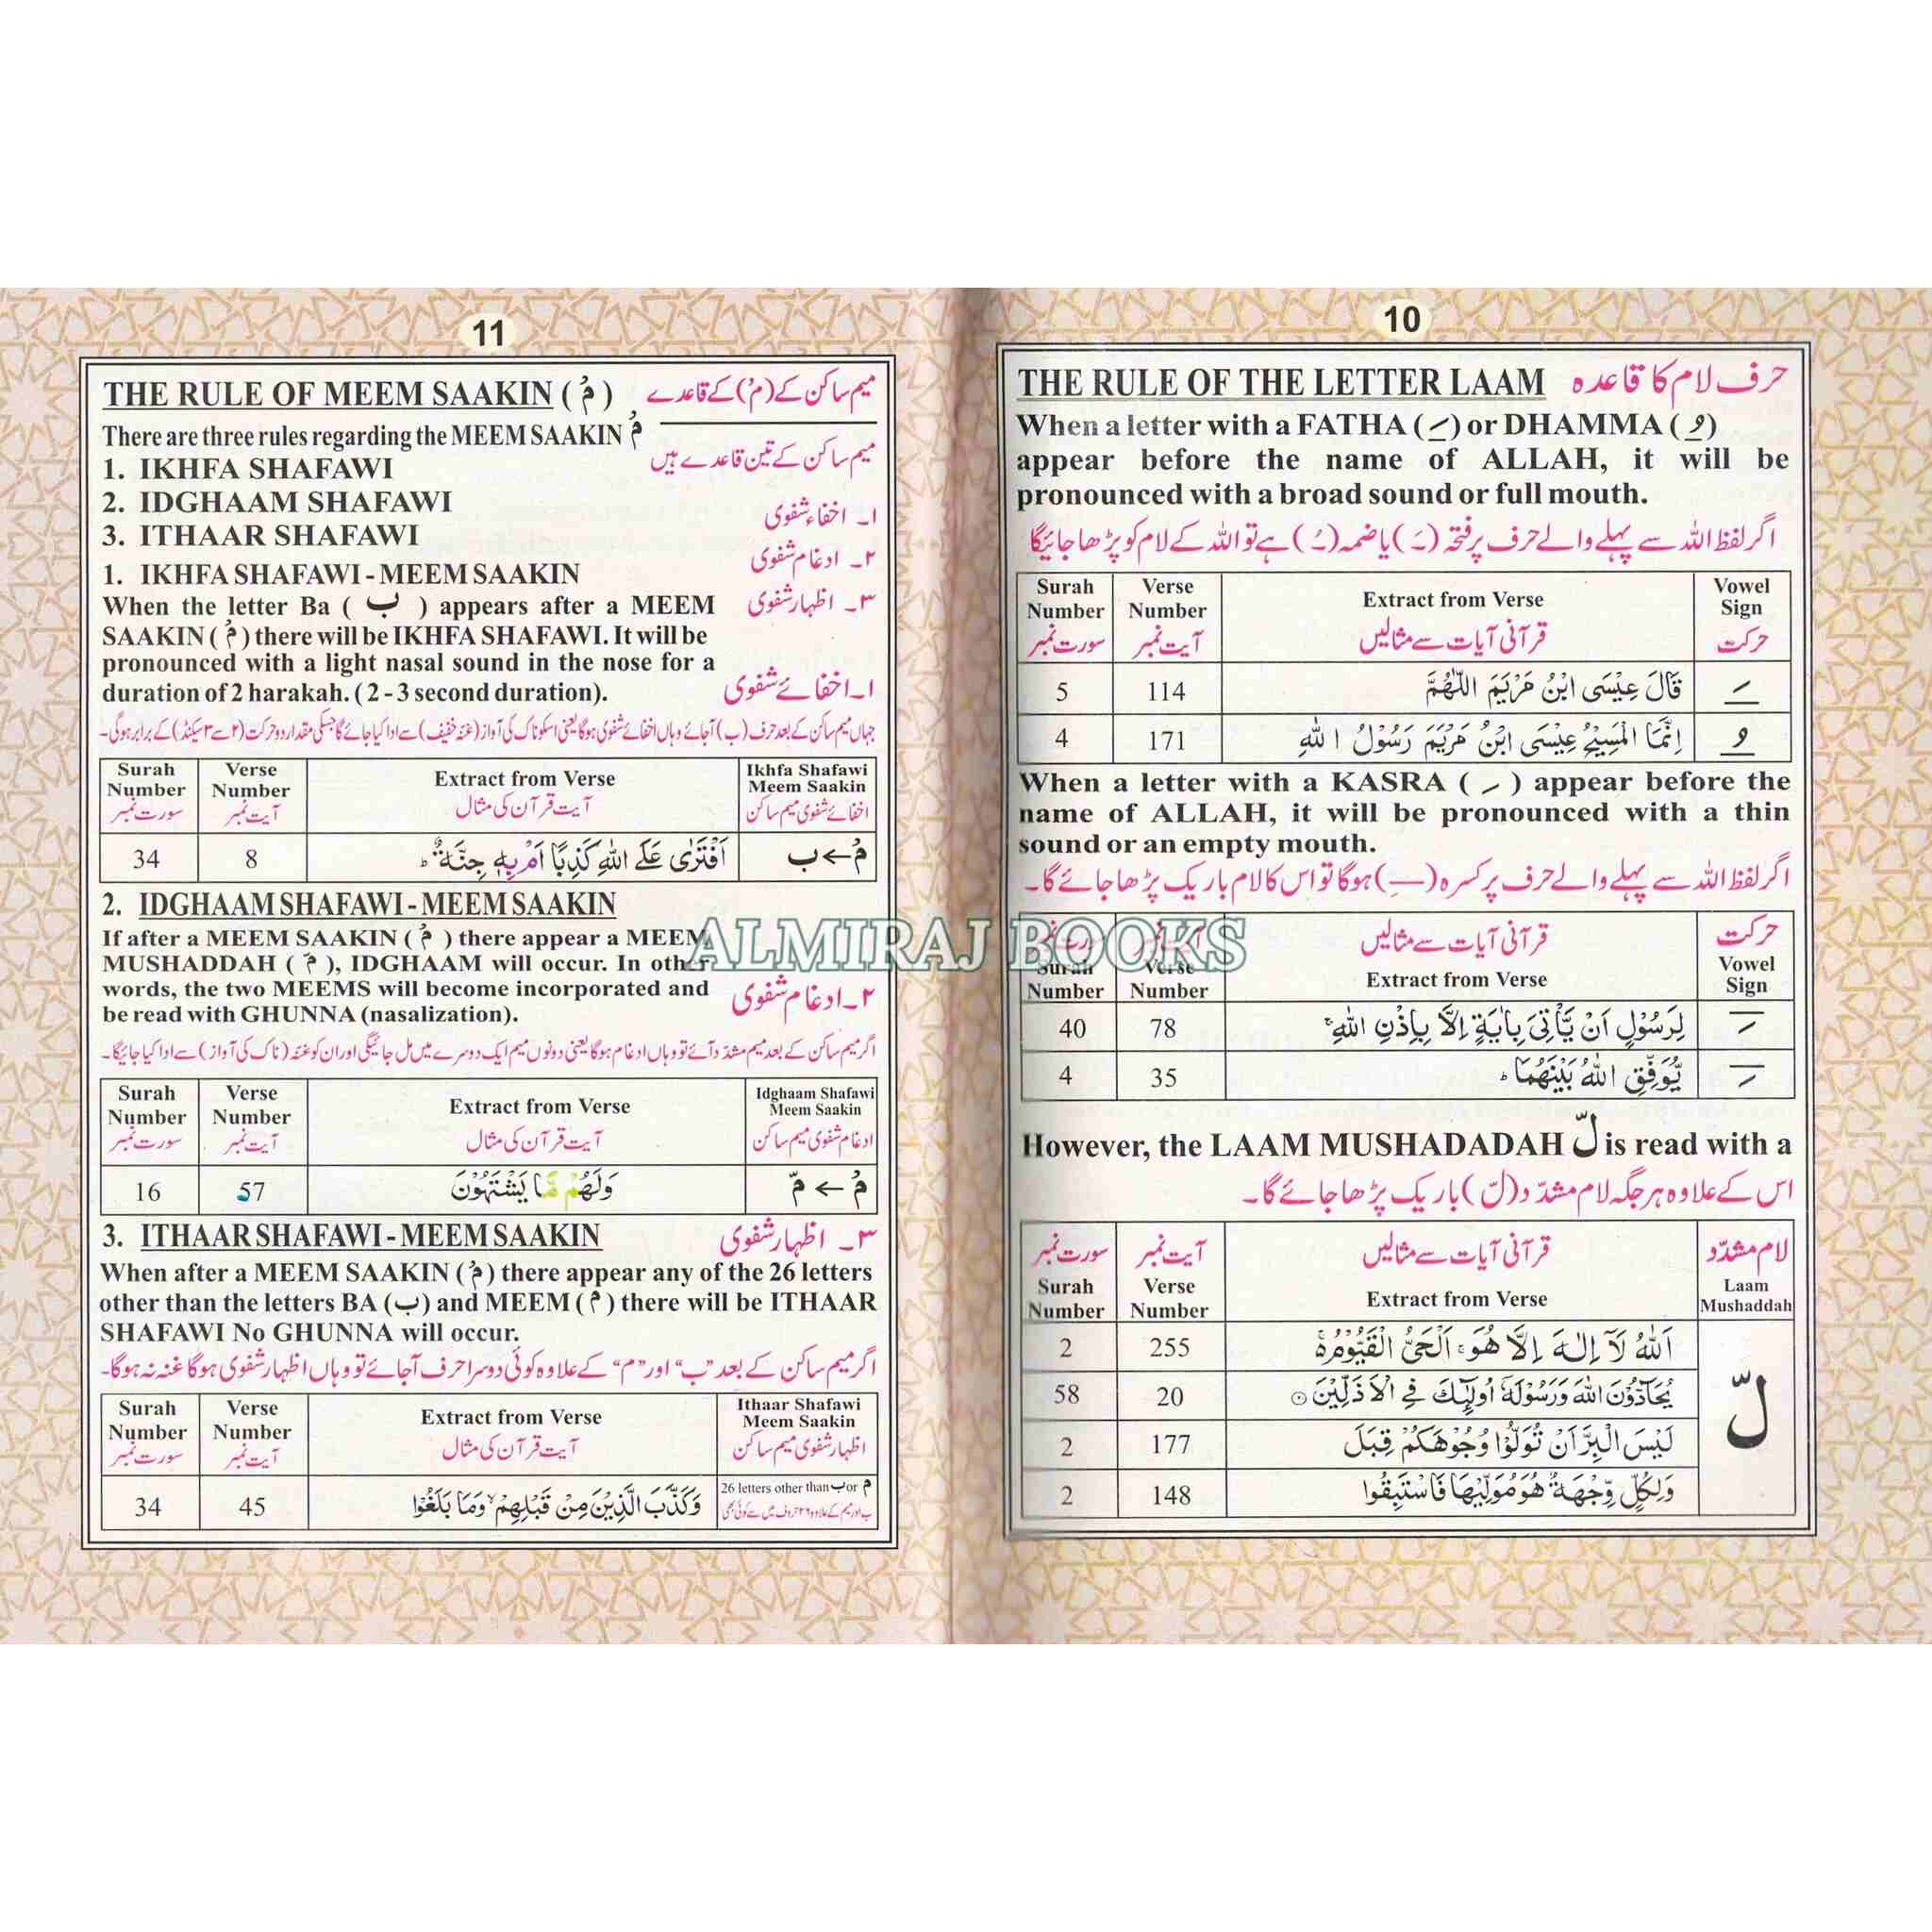 10
THE RULE OF THE LETTER LAAM حرف لام کا قاعدہ
When a letter with a FATHA ( ـَ ) or DHAMMA ( ـُ )
appear before the name of ALLAH, it will be
pronounced with a broad sound or full mouth.
اگر لفظ اللہ سے پہلے والے حرف پر فتحہ (ـَ) یا ضمہ (ـُ) ہے تو اللہ کے لام کو پڑھا جائیگا
Surah Number سورت نمبر | Verse Number آیت نمبر | Extract from Verse قرآنی آیات سے مثالیں | Vowel Sign حرکت
5 | 114 | قَالَ عِيْسَى ابْنُ مَرْيَمَ اللّٰهُمَّ | ـَ
4 | 171 | اِنَّمَا الْمَسِيْحُ عِيْسَى ابْنُ مَرْيَمَ رَسُوْلُ اللّٰهِ | ـُ
When a letter with a KASRA ( ـِ ) appear before the
name of ALLAH, it will be pronounced with a thin
sound or an empty mouth.
اگر لفظ اللہ سے پہلے والے حرف پر کسرہ (ـِ) ہوگا تو اس کا لام باریک پڑھا جائے گا۔
سورت نمبر Surah Number | آیت نمبر Verse Number | قرآنی آیات سے مثالیں Extract from Verse | حرکت Vowel Sign
40 | 78 | لِرَسُوْلٍ اَنْ يَّاْتِيَ بِاٰيَةٍ اِلَّا بِاِذْنِ اللّٰهِ ۚ | ـِ
4 | 35 | يُّوَفِّقِ اللّٰهُ بَيْنَهُمَا ؕ | ـِ
However, the LAAM MUSHADADAH لّ is read with a
اس کے علاوہ ہر جگہ لام مشدّد (لّ) باریک پڑھا جائے گا۔
سورت نمبر Surah Number | آیت نمبر Verse Number | قرآنی آیات سے مثالیں Extract from Verse | لام مشدّد Laam Mushaddah
2 | 255 | اَللّٰهُ لَآ اِلٰهَ اِلَّا هُوَ ۚ اَلْحَيُّ الْقَيُّوْمُ ۚ | لّ
58 | 20 | يُحَآدُّوْنَ اللّٰهَ وَرَسُوْلَهٗٓ اُولٰٓئِكَ فِي الْاَذَلِّيْنَ
2 | 177 | لَيْسَ الْبِرَّ اَنْ تُوَلُّوْا وُجُوْهَكُمْ قِبَلَ
2 | 148 | وَلِكُلٍّ وِّجْهَةٌ هُوَ مُوَلِّيْهَا فَاسْتَبِقُوا
11
THE RULE OF MEEM SAAKIN ( مْ ) میم ساکن کے (مْ) کے قاعدے
There are three rules regarding the MEEM SAAKIN مْ
میم ساکن کے تین قاعدے ہیں
1. IKHFA SHAFAWI
۱۔ اخفاء شفوی
2. IDGHAAM SHAFAWI
۲۔ ادغام شفوی
3. ITHAAR SHAFAWI
۳۔ اظہار شفوی
1. IKHFA SHAFAWI - MEEM SAAKIN
When the letter Ba ( ب ) appears after a MEEM
SAAKIN ( مْ ) there will be IKHFA SHAFAWI. It will be
pronounced with a light nasal sound in the nose for a
duration of 2 harakah. ( 2 - 3 second duration).
۱۔ اخفائے شفوی
جہاں میم ساکن کے بعد حرف (ب) آجائے وہاں اخفائے شفوی ہوگا یعنی اسکو ناک کی آواز (غنہ خفیف) سے ادا کیا جائے گا جسکی مقدار دو حرکت (۲ سے ۳ سیکنڈ) کے برابر ہوگی۔
Surah Number سورت نمبر | Verse Number آیت نمبر | Extract from Verse آیت قرآن کی مثال | Ikhfa Shafawi Meem Saakin اخفائے شفوی میم ساکن
34 | 8 | اَفْتَرٰى عَلَى اللّٰهِ كَذِبًا اَمْ بِهٖ جِنَّةٌ ؕ | مْ ← ب
2. IDGHAAM SHAFAWI - MEEM SAAKIN
If after a MEEM SAAKIN ( مْ ) there appear a MEEM
MUSHADDAH ( مّ ), IDGHAAM will occur. In other
words, the two MEEMS will become incorporated and
be read with GHUNNA (nasalization).
۲۔ ادغام شفوی
اگر میم ساکن کے بعد میم مشدّد آئے تو وہاں ادغام ہوگا یعنی دونوں میم ایک دوسرے میں مل جائیگی اور ان کو غنہ (ناک کی آواز) سے ادا کیا جائیگا۔
Surah Number سورت نمبر | Verse Number آیت نمبر | Extract from Verse آیت قرآن کی مثال | Idghaam Shafawi Meem Saakin ادغام شفوی میم ساکن
16 | 57 | وَلَهُمْ مَّا يَشْتَهُوْنَ | مْ ← مّ
3. ITHAAR SHAFAWI - MEEM SAAKIN ۳۔ اظہار شفوی
When after a MEEM SAAKIN ( مْ ) there appear any of the 26 letters
other than the letters BA (ب) and MEEM ( م ) there will be ITHAAR
SHAFAWI No GHUNNA will occur.
اگر میم ساکن کے بعد "ب" اور "م" کے علاوہ کوئی دوسرا حرف آجائے تو وہاں اظہار شفوی ہوگا غنہ نہ ہوگا۔
Surah Number سورت نمبر | Verse Number آیت نمبر | Extract from Verse آیت قرآن کی مثال | Ithaar Shafawi Meem Saakin اظہار شفوی میم ساکن
34 | 45 | وَكَذَّبَ الَّذِيْنَ مِنْ قَبْلِهِمْ ۙ وَمَا بَلَغُوْا | 26 letters other than ب or م ب اور میم کے علاوہ ۲۶ حروف میں سے کوئی بھی
ALMIRAJ BOOKS